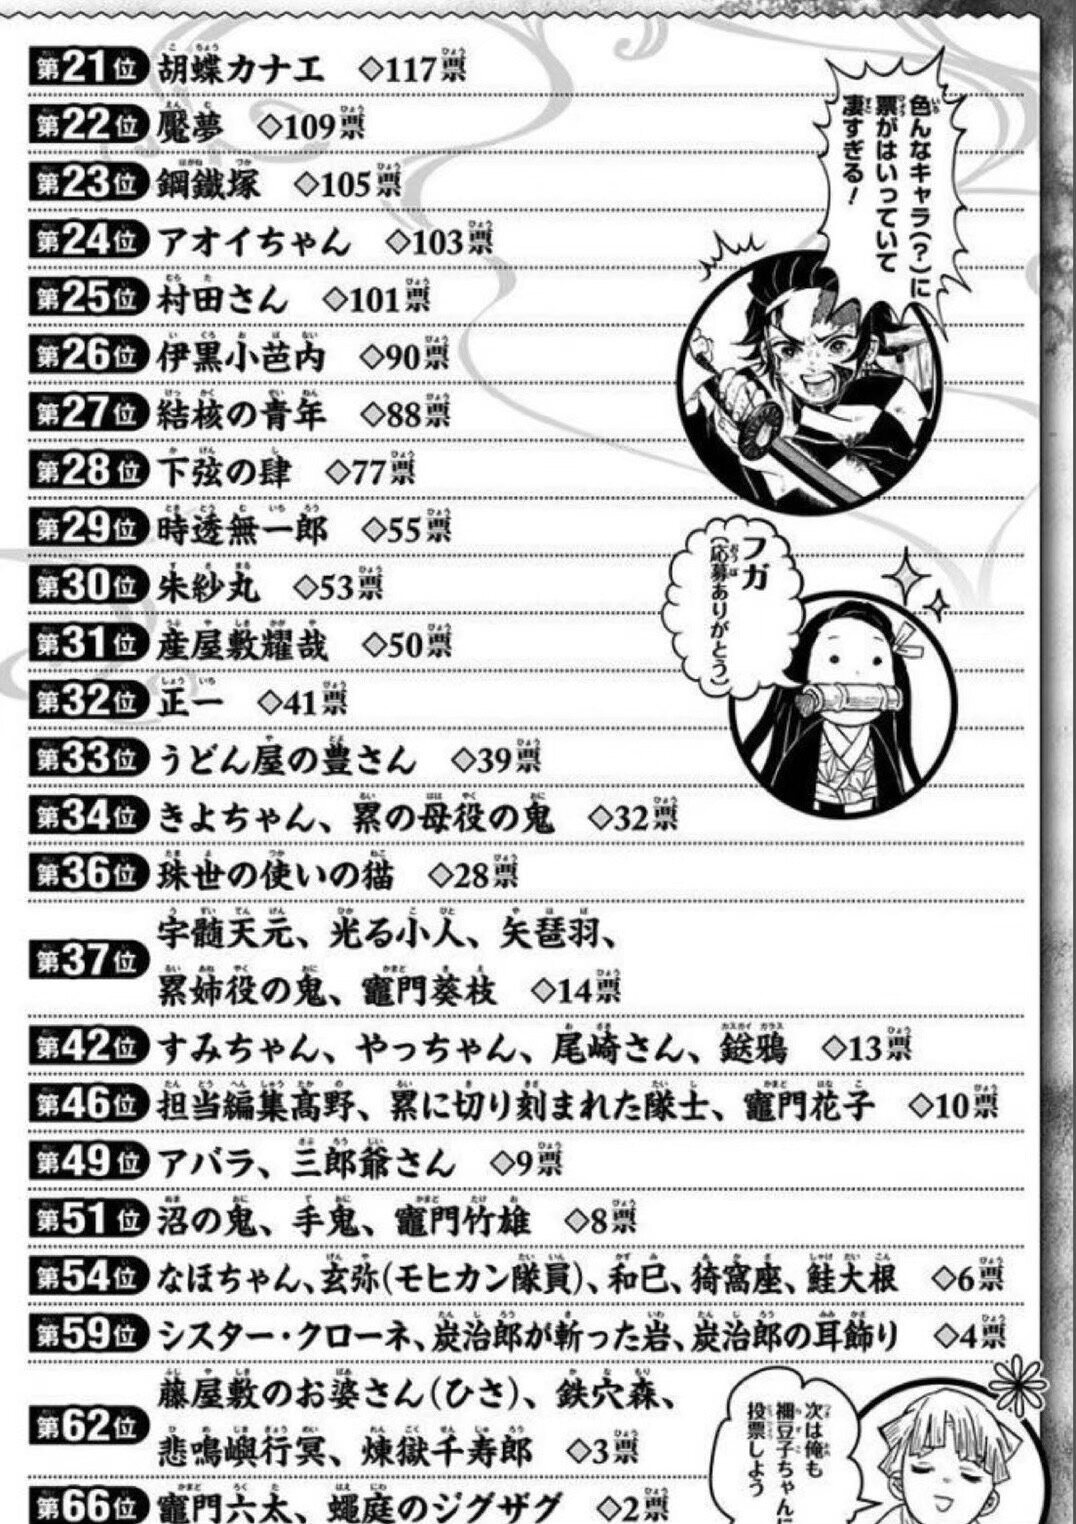 第21位 胡蝶カナエ ◇117票
第22位 魘夢 ◇109票
第23位 鋼鐵塚 ◇105票
第24位 アオイちゃん ◇103票
第25位 村田さん ◇101票
第26位 伊黒小芭内 ◇90票
第27位 結核の青年 ◇88票
第28位 下弦の肆 ◇77票
第29位 時透無一郎 ◇55票
第30位 朱紗丸 ◇53票
第31位 産屋敷耀哉 ◇50票
第32位 正一 ◇41票
第33位 うどん屋の豊さん ◇39票
第34位 きよちゃん、累の母役の鬼 ◇32票
第36位 珠世の使いの猫 ◇28票
第37位 宇髄天元、光る小人、矢琶羽、
累姉役の鬼、竈門葵枝 ◇14票
第42位 すみちゃん、やっちゃん、尾崎さん、鎹鴉 ◇13票
第46位 担当編集髙野、累に切り刻まれた隊士、竈門花子 ◇10票
第49位 アバラ、三郎爺さん ◇9票
第51位 沼の鬼、手鬼、竈門竹雄 ◇8票
第54位 なほちゃん、玄弥(モヒカン隊員)、和巳、猗窩座、鮭大根 ◇6票
第59位 シスター・クローネ、炭治郎が斬った岩、炭治郎の耳飾り ◇4票
第62位 藤屋敷のお婆さん(ひさ)、鉄穴森、
悲鳴嶼行冥、煉獄千寿郎 ◇3票
第66位 竈門六太、蠅庭のジグザグ ◇2票
色んなキャラ(?)に
票がはいっていて
凄すぎる!
フガ
(応募ありがとう)
次は俺も
禰豆子ちゃんに
投票しよう